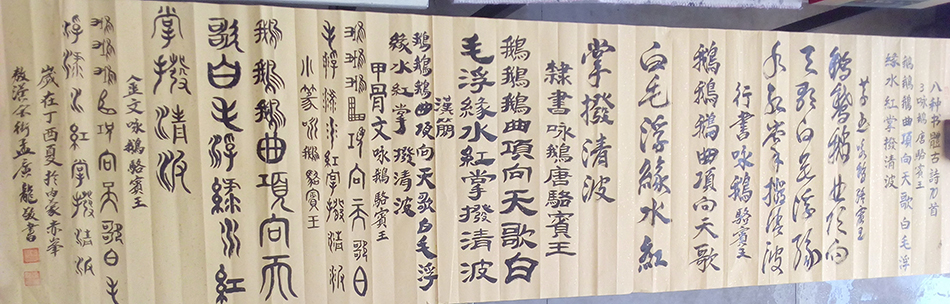 八种书體古詩万首
3咏鵝唐駱宾王
鵝鵝鵝曲項向天歌白毛浮
緑水红掌撥清波
草书咏鵝駱宾王
鵝鵝鵝曲项向
天歌白毛浮绿
水红掌撥清波
行書咏鵝駱賓王
鵝鵝鵝曲項向天歌
白毛浮綠水紅
掌撥清波
隸書咏鵝唐駱賓王
鵝鵝鵝曲項向天歌白
毛浮綠水紅掌撥清波
漢简
鵝鵝鵝曲項向天歌白毛浮
綠水紅掌撥清波
甲骨文咏鵝駱賓王
鵝鵝鵝曲項向天歌白
毛浮綠水紅掌撥清波
小篆咏鵝駱賓王
鵝鵝鵝曲項向天
歌白毛浮綠水紅
掌撥清波
金文咏鵝駱賓王
鵝鵝鵝曲項向天歌白毛
浮綠水紅掌撥清波
歲在丁酉夏於内蒙赤峯
敖漢 街孟广龍敬書